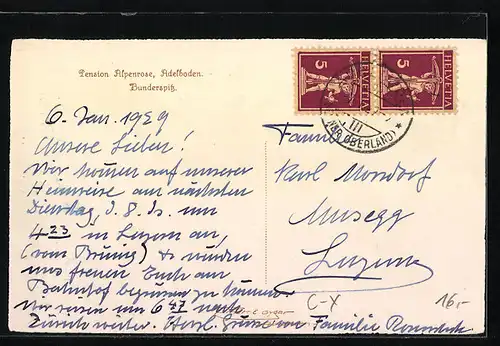 Pension Alpenrose, Adelboden.
Bunderspitz.
5 HELVETIA
5 HELVETIA
(BER. OBERLAND) *
6. Jan. 1929
Unsere Lieben!
Wir kommen auf unserer
Heimreise am nächsten
Dienstag, d. 8. ds. um
4 23 in Luzern an,
(von Brünig) & würden
uns freuen Euch am
Bahnhof begrüssen zu können
Wir reisen um 6 47 nach
Zürich weiter. Herzl. Grüsse von Familie
Familie
Karl Monsdorf
Musegg
Luzern
C-X
16,-